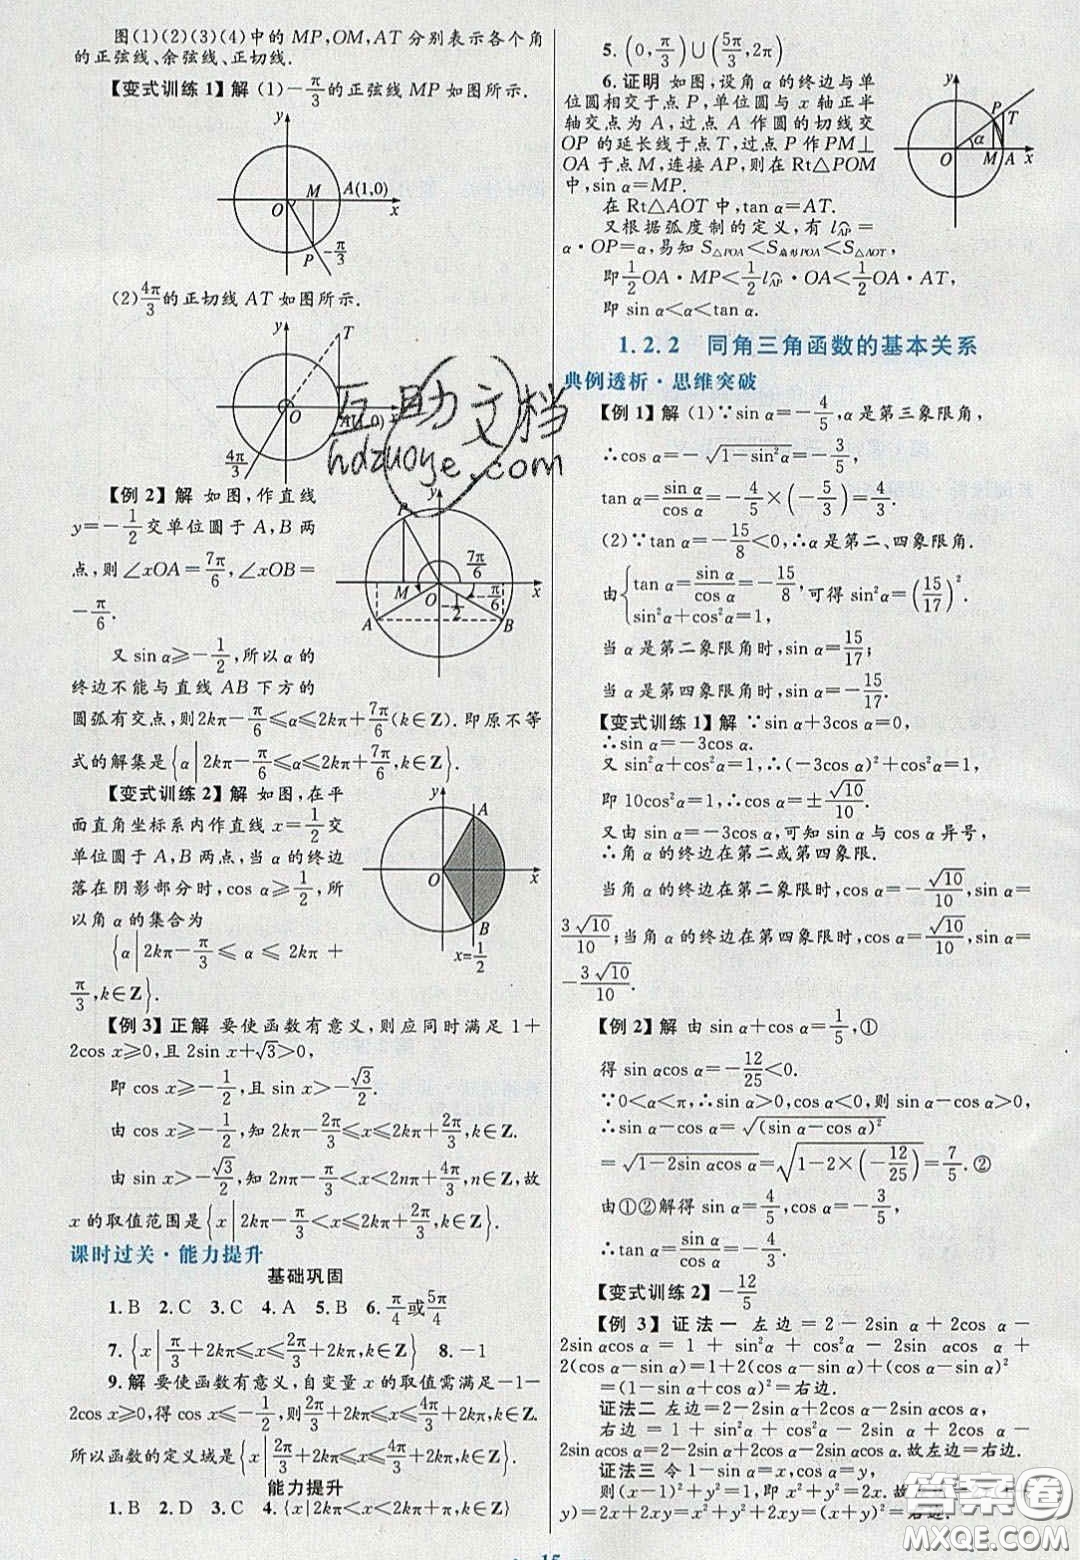 图(1)(2)(3)(4)中的 MP,OM,AT 分别表示各个角
的正弦线、余弦线、正切线.
【变式训练1】解 (1)-π/3的正弦线 MP 如图所示.
y
M A(1,0)
O x
P -π/3
(2)4π/3的正切线 AT 如图所示.
y
T
A(1,0)
O x
4π/3
【例 2】解 如图,作直线
y=-1/2交单位圆于 A,B 两
点,则∠xOA=7π/6,∠xOB=
-π/6.
又 sin α≥-1/2,所以 α 的
终边不能与直线 AB 下方的
y
P
7π/6
M O x
-π/6
-1/2
A B
圆弧有交点,则2kπ-π/6≤α≤2kπ+7π/6(k∈Z).即原不等
式的解集是{α|2kπ-π/6≤α≤2kπ+7π/6,k∈Z}.
【变式训练2】解 如图,在平
面直角坐标系内作直线 x=1/2交
单位圆于 A,B 两点,当 α 的终边
落在阴影部分时,cos α≥1/2,所
以角 α 的集合为
{α|2kπ-π/3≤α≤2kπ+
π/3,k∈Z}.
y
A
O x
B
x=1/2
【例 3】正解 要使函数有意义,则应同时满足 1+
2cos x≥0,且 2sin x+√3>0,
即 cos x≥-1/2,且 sin x>-√3/2.
由 cos x≥-1/2,知 2kπ-2π/3≤x≤2kπ+2π/3,k∈Z.
由 sin x>-√3/2,知 2nπ-π/3<x<2nπ+4π/3,n∈Z,故
x 的取值范围是{x|2kπ-π/3<x≤2kπ+2π/3,k∈Z}.
课时过关·能力提升
基础巩固
1.B 2.C 3.C 4.A 5.B 6.π/4或5π/4
7.{x|π/3+2kπ≤x≤2π/3+2kπ,k∈Z} 8.-1
9.解 要使函数有意义,自变量 x 的取值需满足-1-
2cos x≥0,得 cos x≤-1/2,则2π/3+2kπ≤x≤4π/3+2kπ,k∈Z.
所以函数的定义域是{x|2π/3+2kπ≤x≤4π/3+2kπ,k∈Z}.
能力提升
1.B 2.D 3.C 4.{x|2kπ<x<2kπ+π,k∈Z}
5.(0,π/3)∪(5π/3,2π)
6.证明 如图,设角 α 的终边与单
位圆相交于点 P,单位圆与 x 轴正半
轴交点为 A,过点 A 作圆的切线交
OP 的延长线于点 T,过点 P 作 PM⊥
OA 于点 M,连接 AP,则在 Rt△POM
中,sin α=MP.
y
P T
α
O M A x
在 Rt△AOT 中,tan α=AT.
又根据弧度制的定义,有 l⌒AP=
α·OP=α,易知 S△POA<S扇形POA<S△AOT,
即1/2OA·MP<1/2l⌒AP·OA<1/2OA·AT,
即 sin α<α<tan α.
1.2.2 同角三角函数的基本关系
典例透析·思维突破
【例 1】解 (1)∵sin α=-4/5,α 是第三象限角,
∴cos α=-√(1-sin²α)=-3/5,
tan α=sin α/cos α=-4/5×(-5/3)=4/3.
(2)∵tan α=-15/8<0,∴α 是第二、四象限角.
由{tan α=sin α/cos α=-15/8, sin²α+cos²α=1,可得 sin²α=(15/17)².
当 α 是第二象限角时,sin α=15/17;
当 α 是第四象限角时,sin α=-15/17.
【变式训练1】解 ∵sin α+3cos α=0,
∴sin α=-3cos α.
又 sin²α+cos²α=1,∴(-3cos α)²+cos²α=1,
即 10cos²α=1,∴cos α=±√10/10.
又由 sin α=-3cos α,可知 sin α 与 cos α 异号,
∴角 α 的终边在第二或第四象限.
当角 α 的终边在第二象限时,cos α=-√10/10,sin α=
3√10/10;当角 α 的终边在第四象限时,cos α=√10/10,sin α=
-3√10/10.
【例 2】解 由 sin α+cos α=1/5,①
得 sin αcos α=-12/25<0.
∵0<α<π,∴sin α>0,cos α<0,则 sin α-cos α>0,
∴sin α-cos α=√(sin α-cos α)²
=√(1-2sin αcos α)=√(1-2×(-12/25))=7/5.②
由①②解得 sin α=4/5,cos α=-3/5,
∴tan α=sin α/cos α=-4/3.
【变式训练2】-12/5
【例 3】证法一 左边=2-2sin α+2cos α-
2sin αcos α=1+sin²α+cos²α-2sin αcos α+
2(cos α-sin α)=1+2(cos α-sin α)+(cos α-sin α)²
=(1-sin α+cos α)²=右边.
证法二 左边=2-2sin α+2cos α-2sin αcos α,
右边=1+sin²α+cos²α-2sin α+2cos α-
2sin αcos α=2-2sin α+2cos α-2sin αcos α.故左边=右边.
证法三 令 1-sin α=x,cos α=y,
则(x-1)²+y²=1,即 x²+y²=2x.故左边=2x(1+
y)=2x+2xy=x²+y²+2xy=(x+y)²=右边.
15
互助文档
hdzuoye.com
答案圈
MXQE.COM